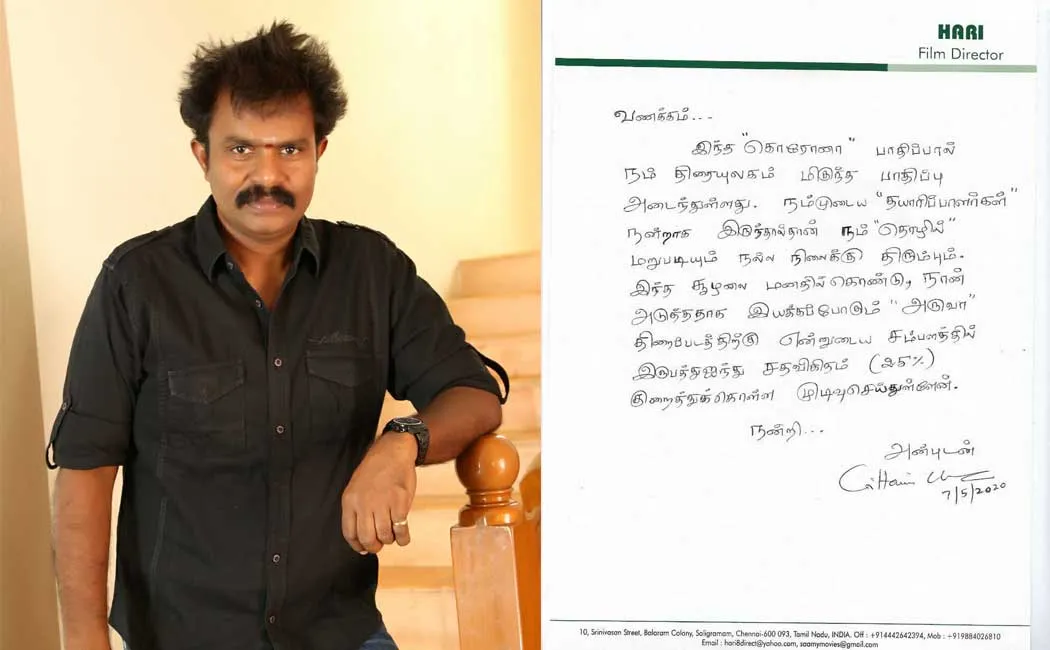 HARI
Film Director
வணக்கம்...
இந்த "கொரோனா" பாதிப்பால்
நம் திரையுலகம் மிகுந்த பாதிப்பு
அடைந்துள்ளது. நம்முடைய "தயாரிப்பாளர்கள்"
நன்றாக இருந்தால்தான் நம் "தொழில்"
மறுபடியும் நல்ல நிலைக்கு திரும்பும்.
இந்த சூழலை மனதில்கொண்டு, நான்
அடுத்ததாக இயக்கப்போகும் "அருவா"
திரைபடத்திற்கு என்னுடைய சம்பளத்தில்
இருபத்துஐந்து சதவிகிதம் (25%)
குறைத்துக்கொள்ள முடிவுசெய்துள்ளேன்.
நன்றி...
அன்புடன்
7/5/2020
10, Srinivasan Street, Balaram Colony, Saligramam, Chennai-600 093, Tamil Nadu, INDIA. Off : +914442642394, Mob : +919884026810
Email : hari8direct@yahoo.com, saamymovies@gmail.com